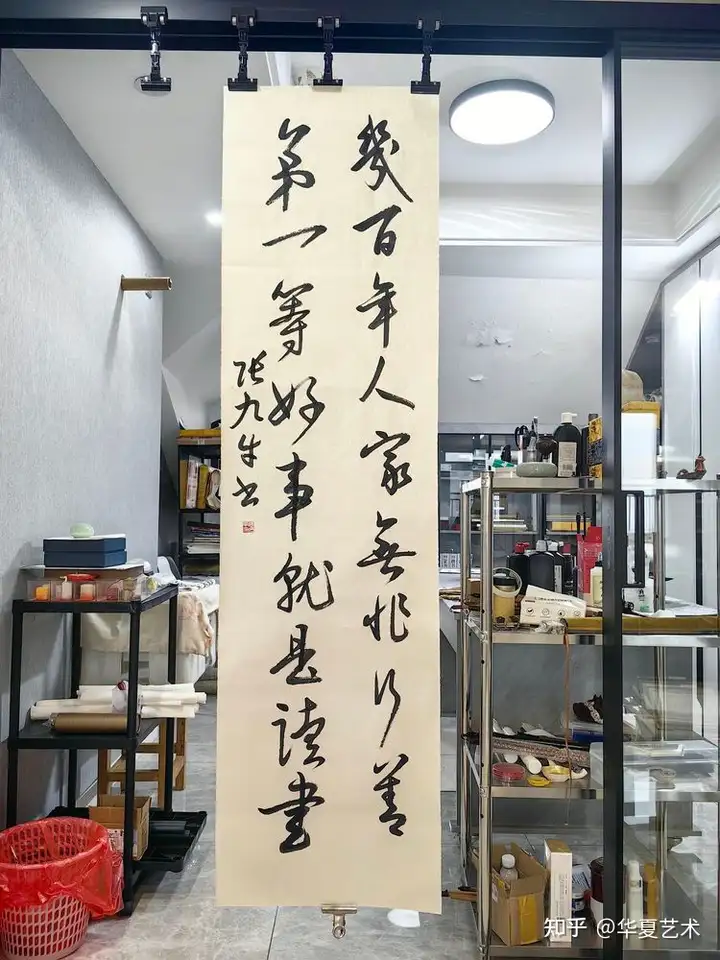 幾百年人家無非行善
第一等好事就是讀書
张九生书
知乎 @华夏艺术